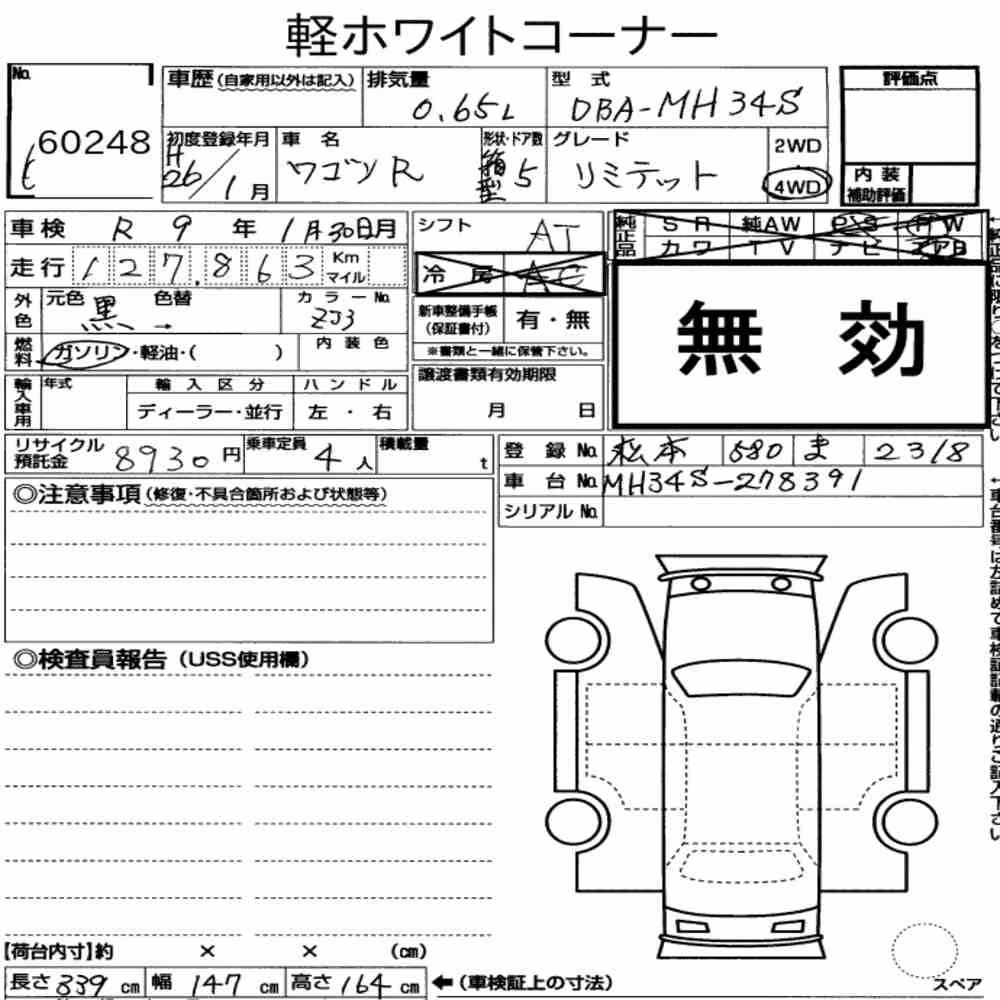 軽ホワイトコーナー
No.
60248
車歴(自家用以外は記入)
排気量
0.65L
型 式
DBA-MH34S
評価点
初度登録年月
H
26/1月
車 名
ワゴンR
形状・ドア数
箱型 5
グレード
リミテット
2WD
4WD
内 装
補助評価
車検 R 9 年 1月30日月
シフト AT
純正品
SR 純AW PS PW
カワ TV ナビ エアB
走行 127,863 Km マイル
冷 房 AC
無 効
外色
元色 黒 色替 →
カラーNo.
ZJ3
新車整備手帳
(保証書付)
有・無
※書類と一緒に保管下さい。
燃料
ガソリン・軽油・( )
内 装 色
輸入車用
年式
輸 入 区 分
ハ ン ド ル
ディーラー・並行
左 ・ 右
譲渡書類有効期限
月 日
リサイクル
預託金 8930円
乗車定員 4人
積載量 t
登 録 No. 松本 580 ま 2318
車 台 No. MH34S-278391
シリアル No.
◎注意事項(修復・不具合箇所および状態等)
◎検査員報告(USS使用欄)
【荷台内寸】約 × × (cm)
長さ 339 cm 幅 147 cm 高さ 164 cm ←(車検証上の寸法)
スペア